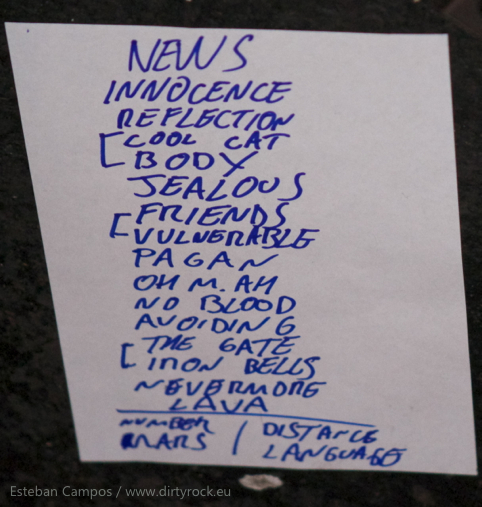 NEWS
INNOCENCE
REFLECTION
COOL CAT
BODY
JEALOUS
FRIENDS
VULNERABLE
PAGAN
OH M. AH
NO BLOOD
AVOIDING
THE GATE
IRON BELLS
NEVERMORE
LAVA
NUMBER / DISTANCE
MARS / LANGUAGE
Esteban Campos / www.dirtyrock.eu